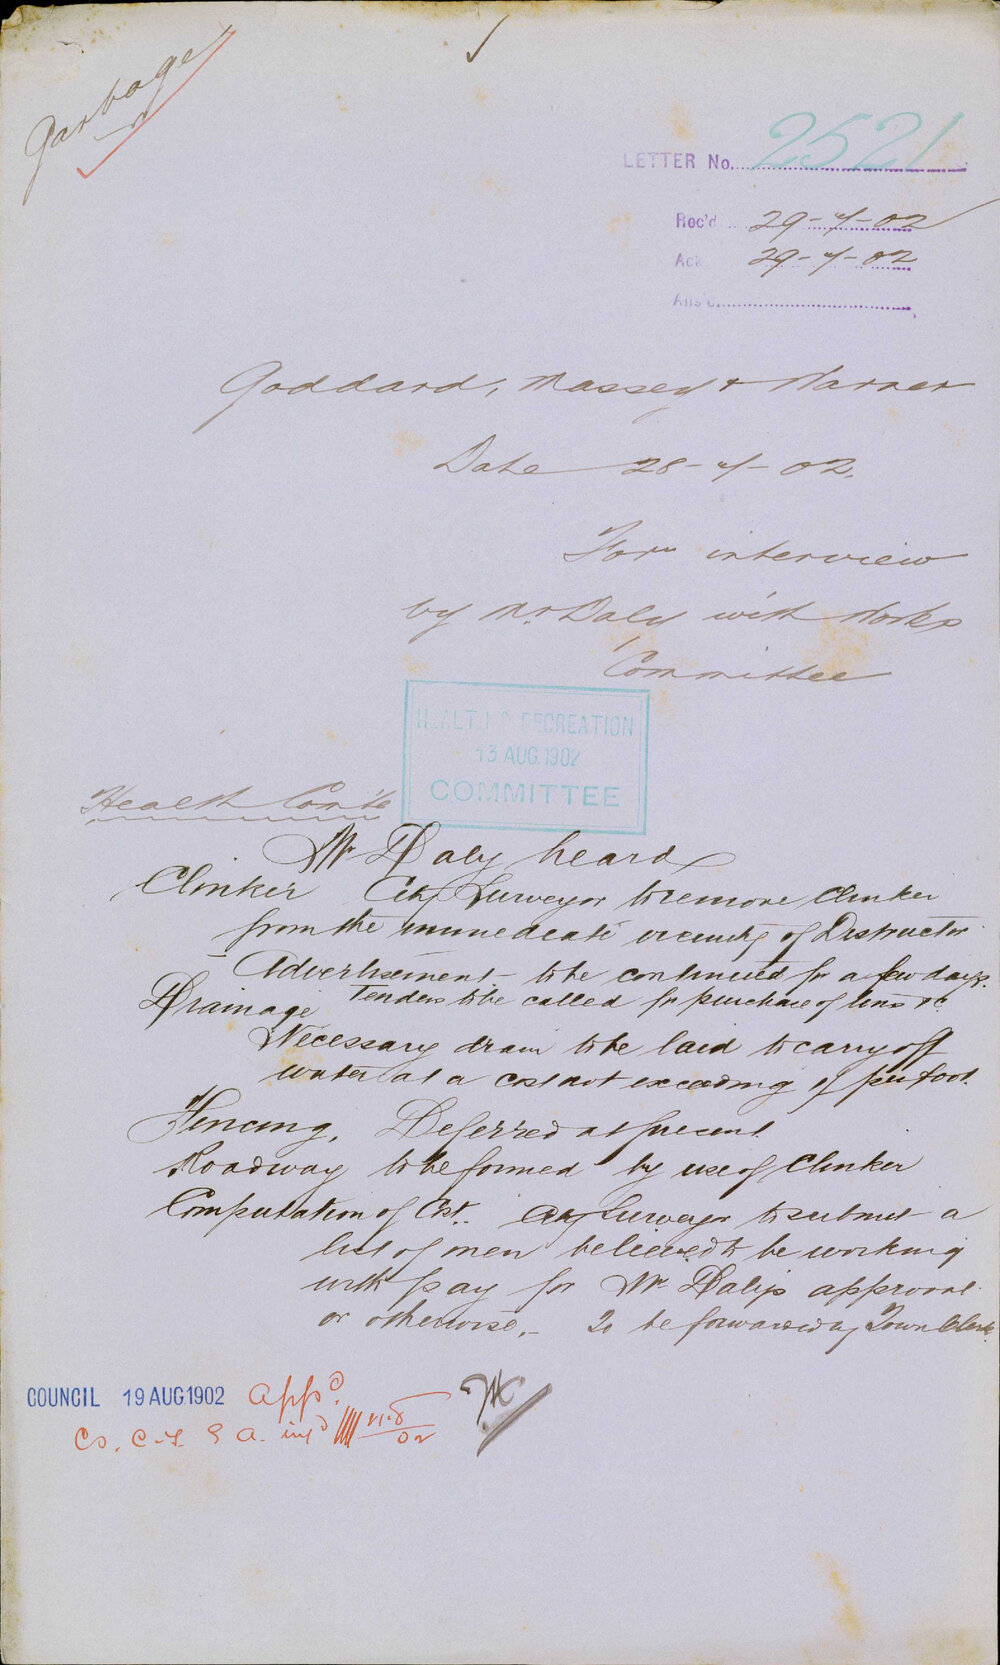 Garbage
LETTER No. 2521
Rec'd 29-7-02
Ack 29-7-02
Ans'd
Goddard, Massey & Warner
Date 28-7-02.
For interview
by Mr. Daly with Works
Committee
HEALTH & RECREATION
13 AUG. 1902
COMMITTEE
Health Com'te
Mr Daly heard
Clinker City Surveyor to remove Clinker
from the immediate vicinity of Destructor
Advertisement to be continued for a few days.
Tenders to be called for purchase of tins &c
Drainage
Necessary drain to be laid to carry off
water at a cost not exceeding 1/ per foot.
Fencing. Deferred at present
Roadway to be formed by use of Clinker
Computation of Cost. City Surveyor to submit a
list of men believed to be working
with pay for Mr Daly's approval
or otherwise. - To be forwarded by Town Clerk.
COUNCIL 19 AUG. 1902 appd.
CS. C.T. & A. infd
02